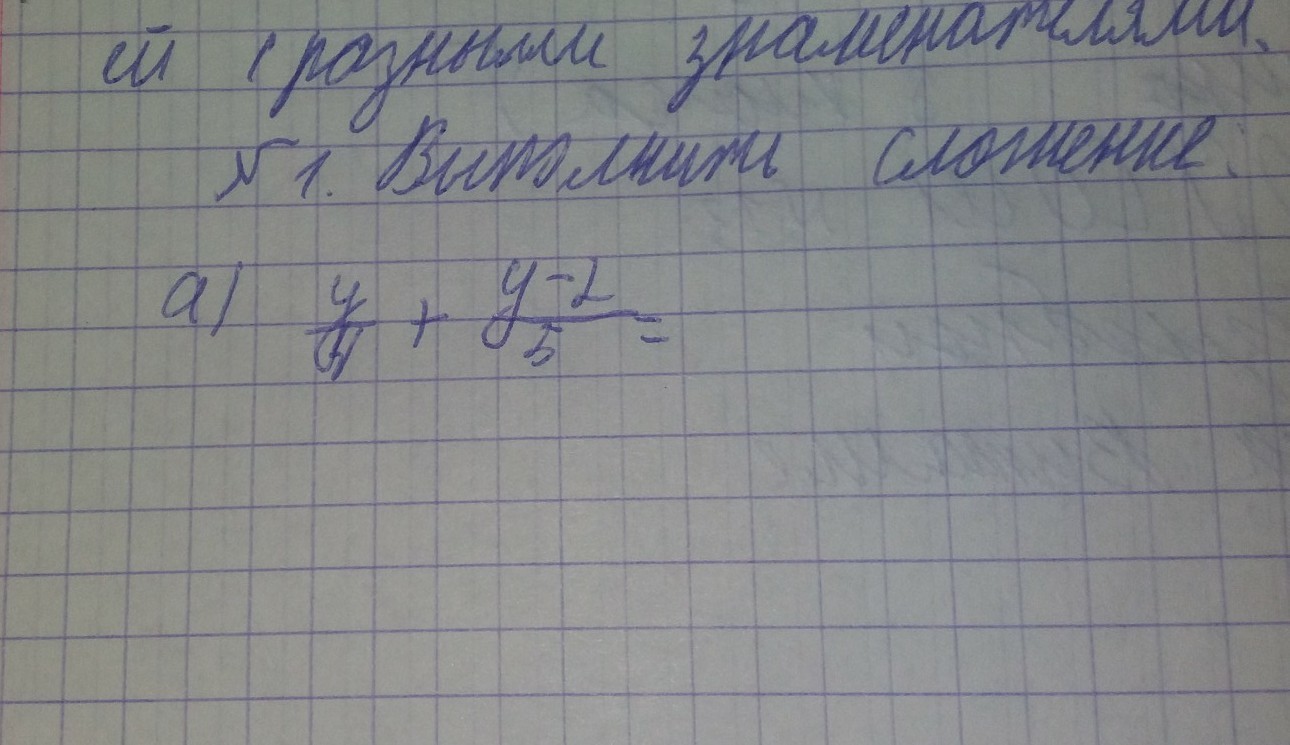 ей с разными знаменателями.
№1. Выполнить сложение.
а) y/4 + y-2/5 =